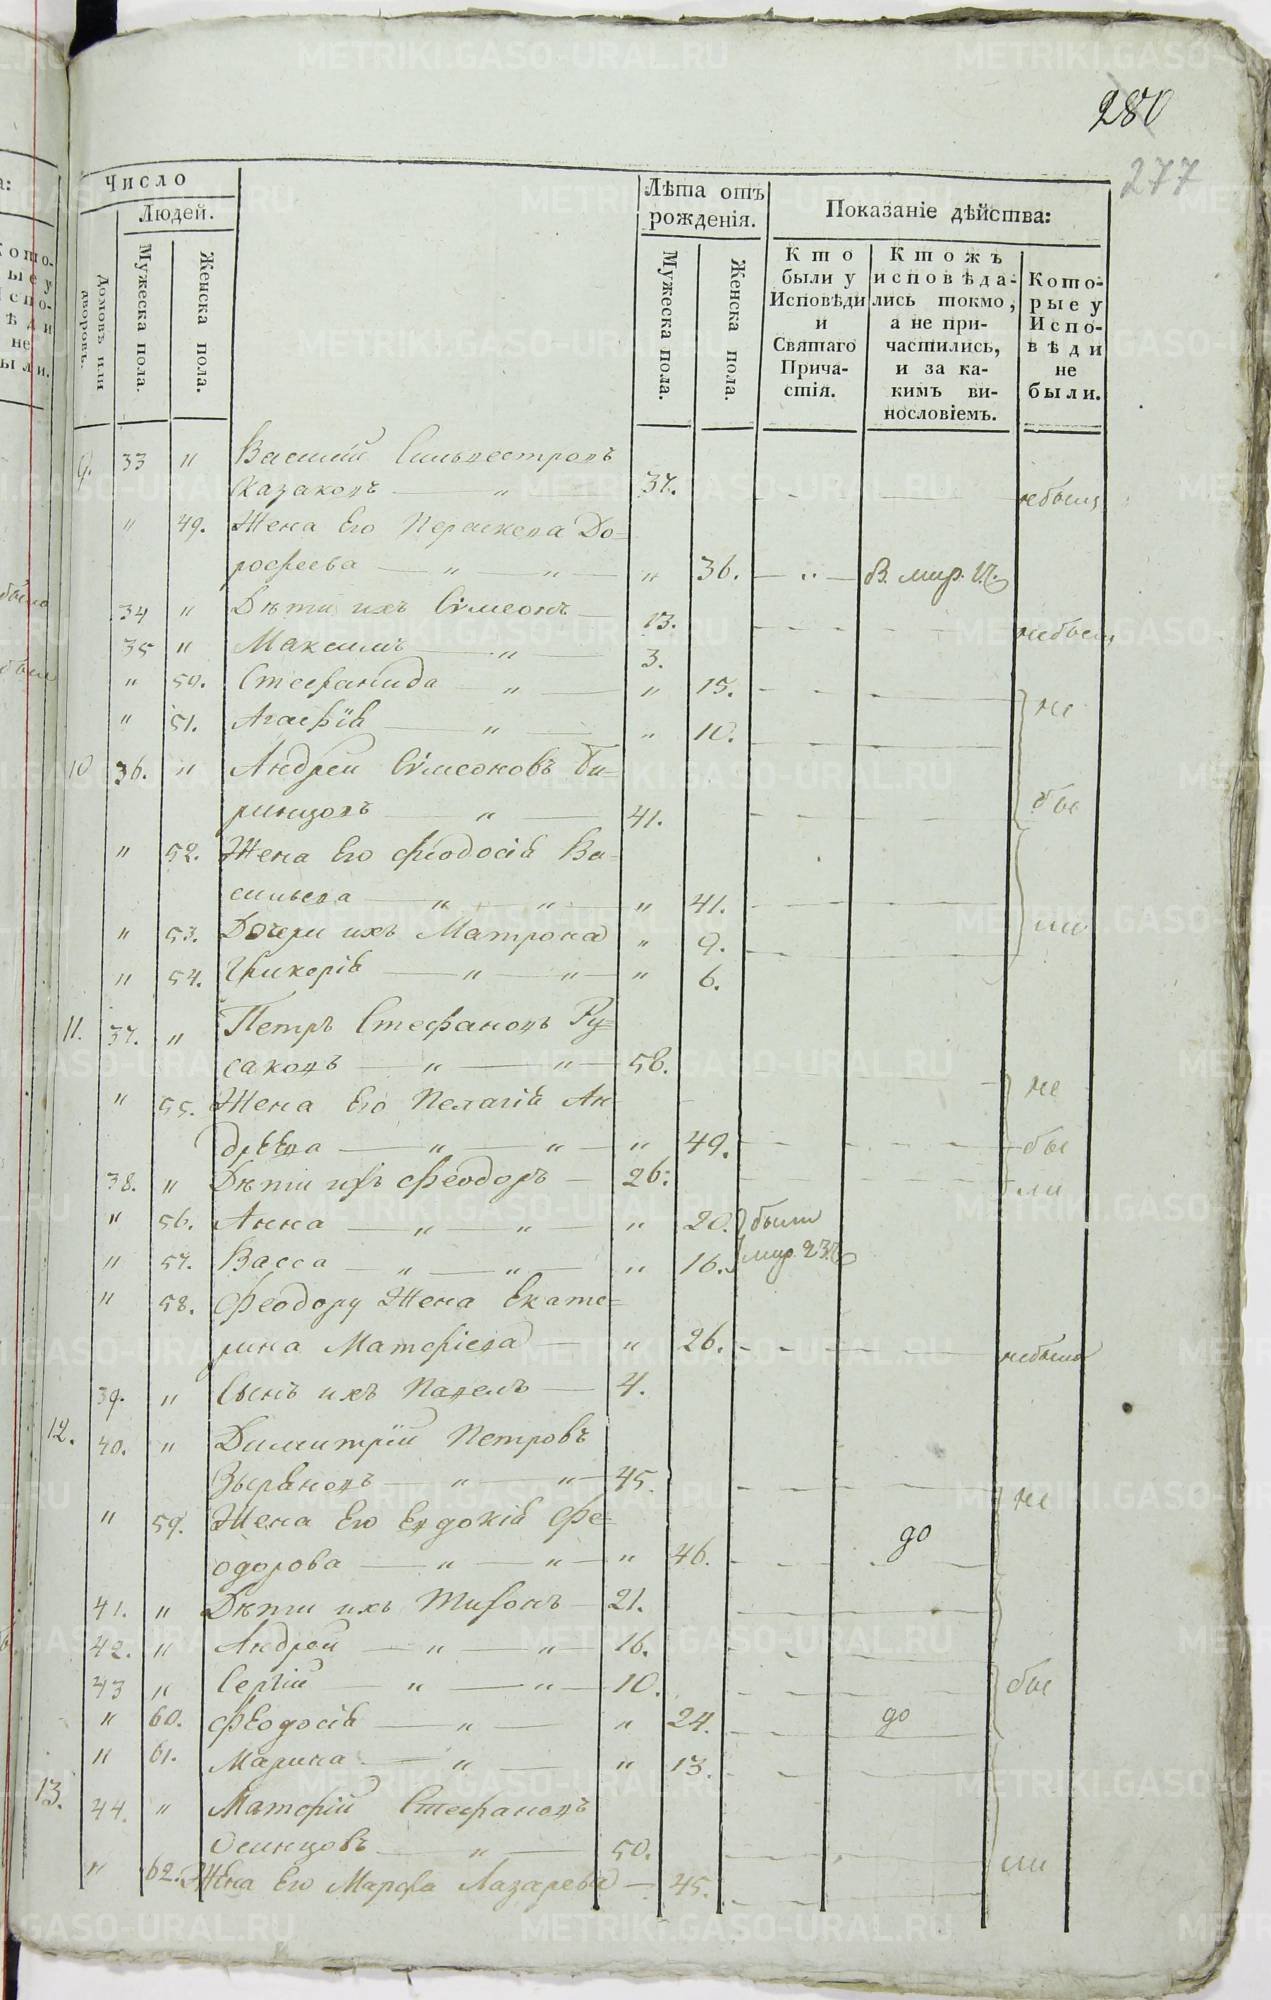 280
277
Число
Людей.
домовъ или дворовъ.
Мужеска пола.
Женска пола.
Лѣта отъ рожденія.
Мужеска пола.
Женска пола.
Показаніе дѣйства:
Кто были у Исповѣди и Святаго Причастія.
Ктожъ исповѣдались токмо, а не причастились, и за какимъ винословіемъ.
Которые у Исповѣди не были.
9. 33 " Василій Сильвестровъ
Казаковъ — " — 37. небылъ
" 49. Жена Его Параскева До=
рофеева — " — " — " 36. — " —
34 " Дѣти ихъ Сімеонъ — 13. небыли
35 " Максимъ — " — 3.
" 50. Стефанида — " — " 15. не
" 51. Агафія — " — " 10.
10 36. " Андрей Сімеоновъ Би=
ринцовъ — " — 41. бы
" 52. Жена Его Феодосія Ва=
сильева — " — " — " 41.
" 53. Дочери ихъ Матрона " 9. ли
" 54. Гликерія — " — " — " 6.
11. 37. " Петръ Стефановъ Ру=
саковъ — " — " — 56. не
" 55. Жена Его Пелагія Ан
дрѣева — " — " — " 49. бы
38. " Дѣти ихъ Феодоръ — 26. ли
" 56. Анна — " — " — " 20. были
" 57. Васса — " — " — " 16. мар. 23.
" 58. Феодору Жена Екате=
рина Матфіева — " 26. небыла
39. " Сынъ ихъ Павелъ — 4.
12. 40. " Димитрій Петровъ
Зырѣновъ — " — " — 45. не
" 59. Жена Его Евдокія Фе=
одорова — " — " — " 46. до
41. " Дѣти ихъ Тихонъ — 21.
42. " Андрей — " — " — 16.
43 " Сергій — " — " — 10. бы
" 60. Феодосія — " — " 24. до
" 61. Марина — " — " 13.
13. 44. " Матфій Стефановъ
Осинцовъ — " — 50. ли
" 62. Жена Его Марфа Лазарева — 45.